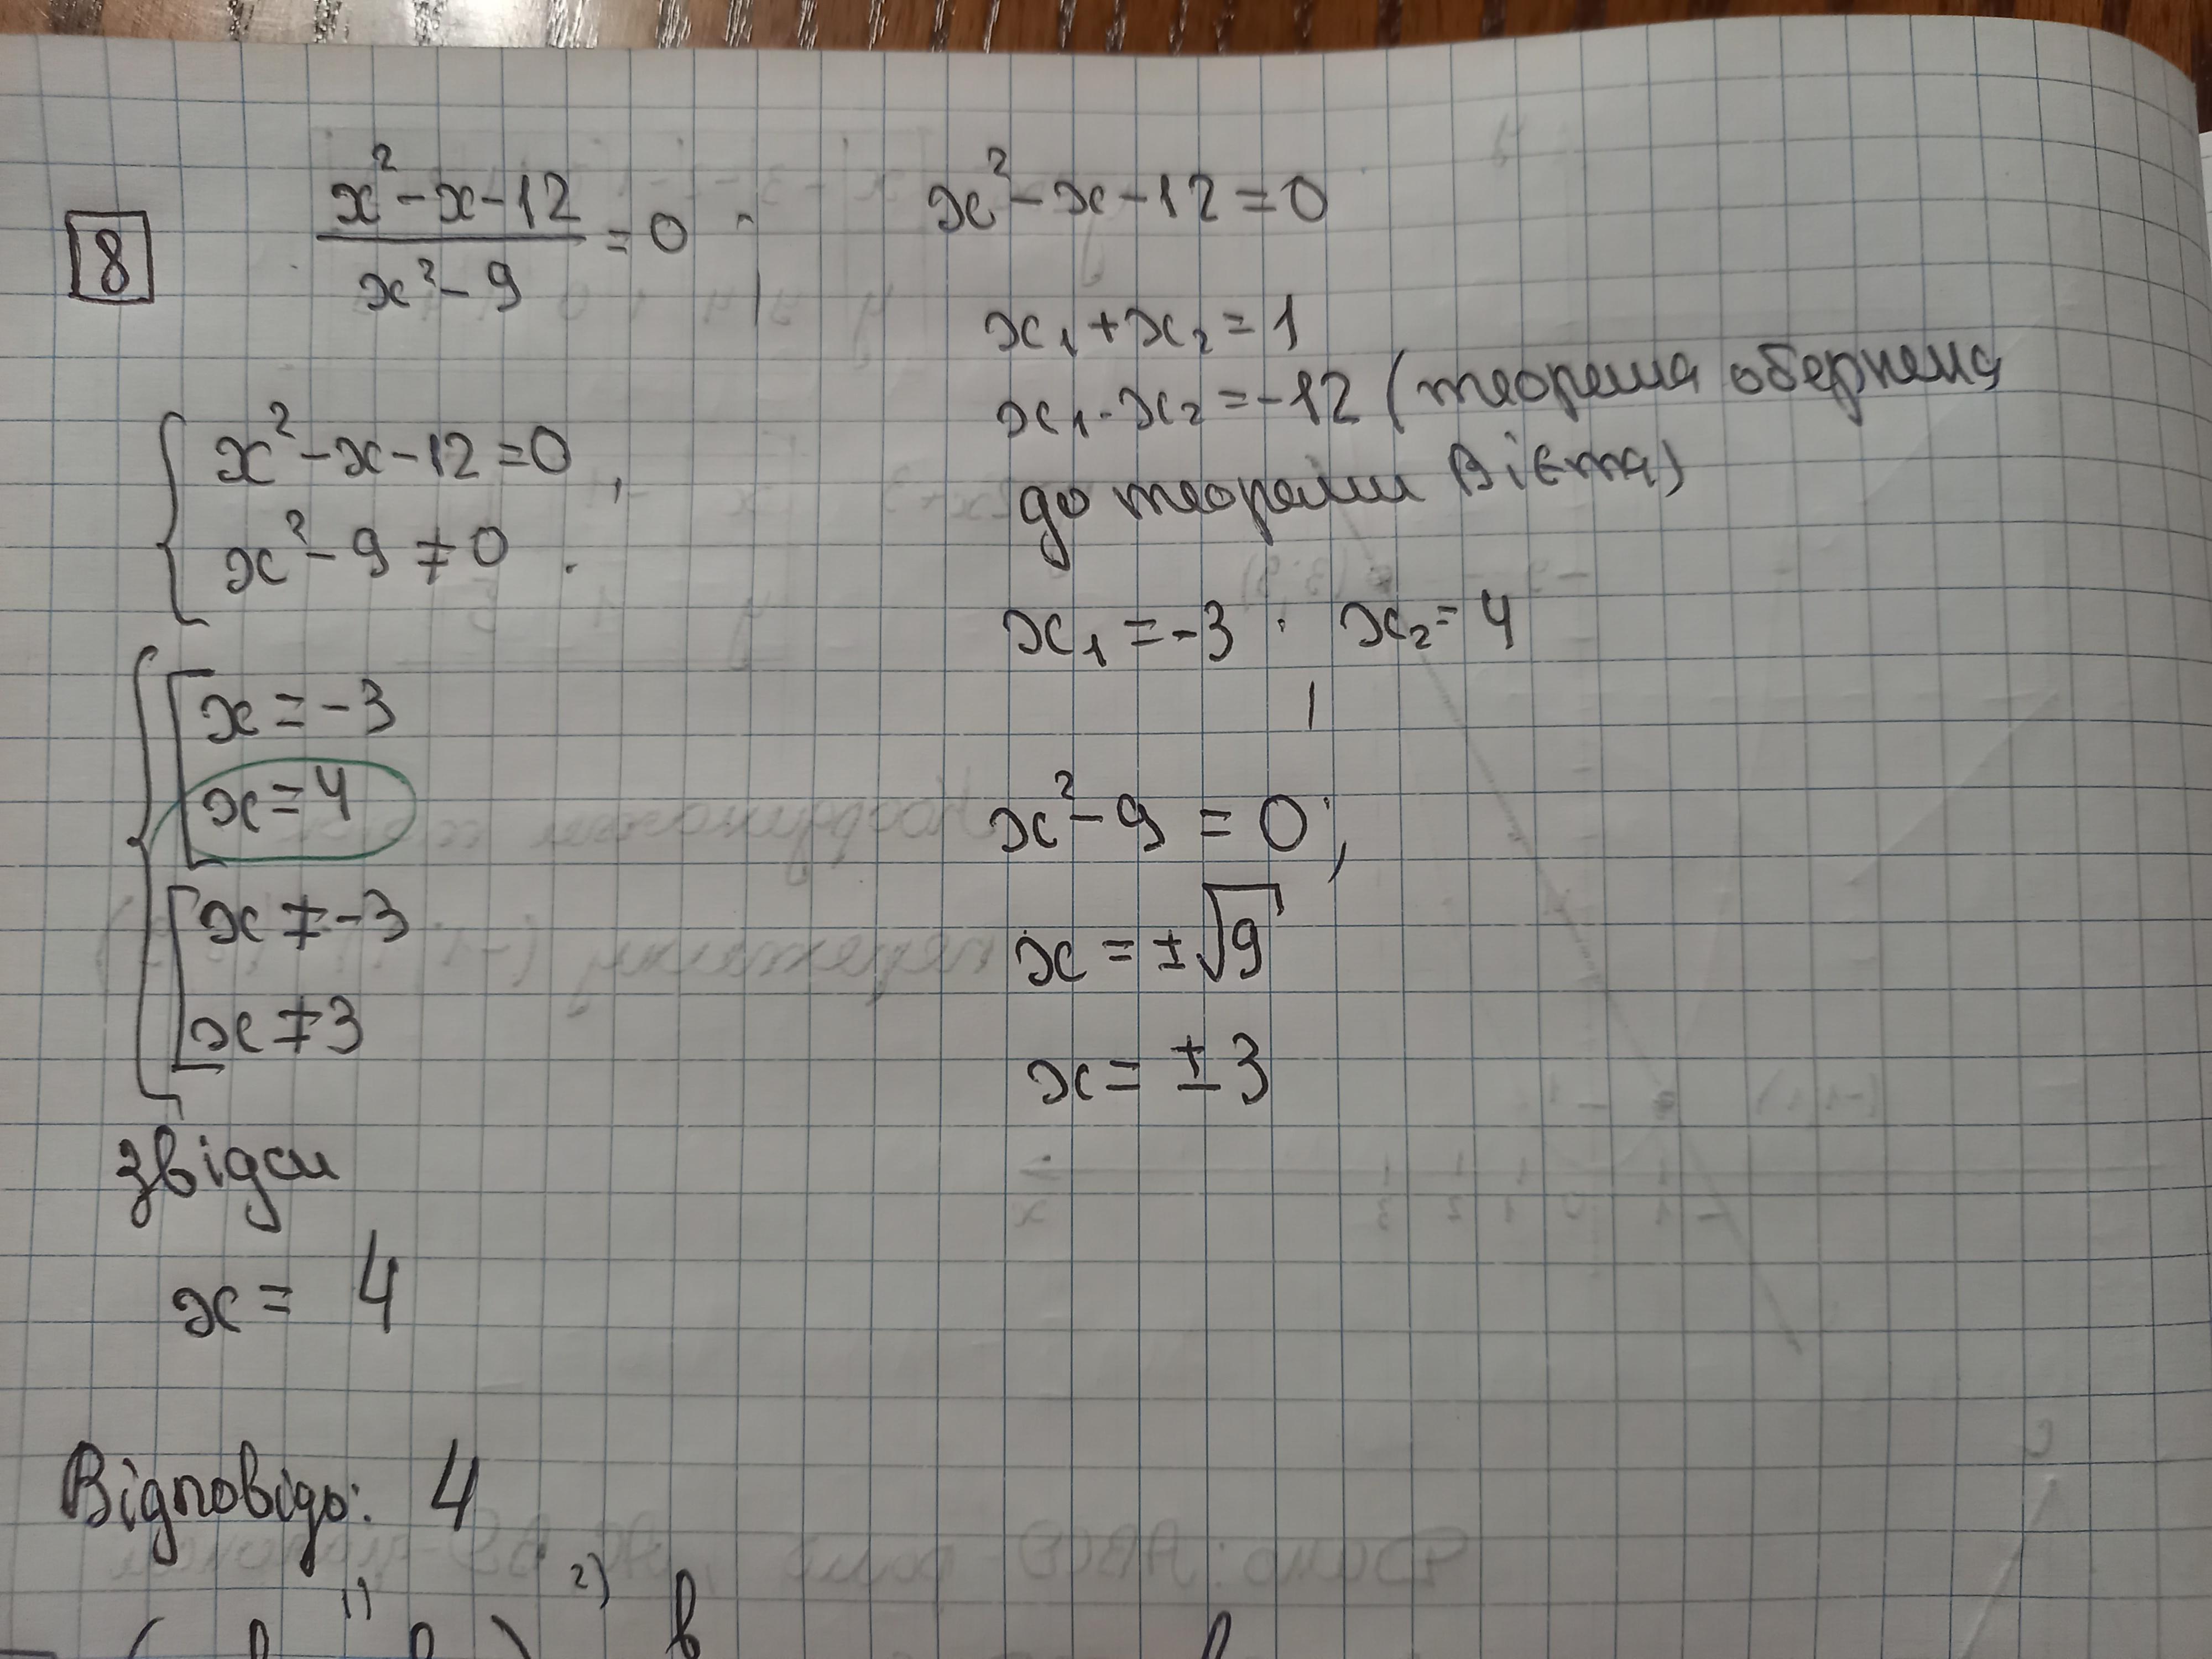 8
x² - x - 12 / x² - 9 = 0 ;
{ x² - x - 12 = 0 ,
x² - 9 ≠ 0 .
{ [ x = -3
x = 4
[ x ≠ -3
x ≠ 3
звідси
x = 4
Відповідь: 4
x² - x - 12 = 0
x₁ + x₂ = 1
x₁ · x₂ = -12 (теорема обернена
до теореми Вієта)
x₁ = -3 ; x₂ = 4
x² - 9 = 0 ;
x = ±√9
x = ±3
1) 2) в